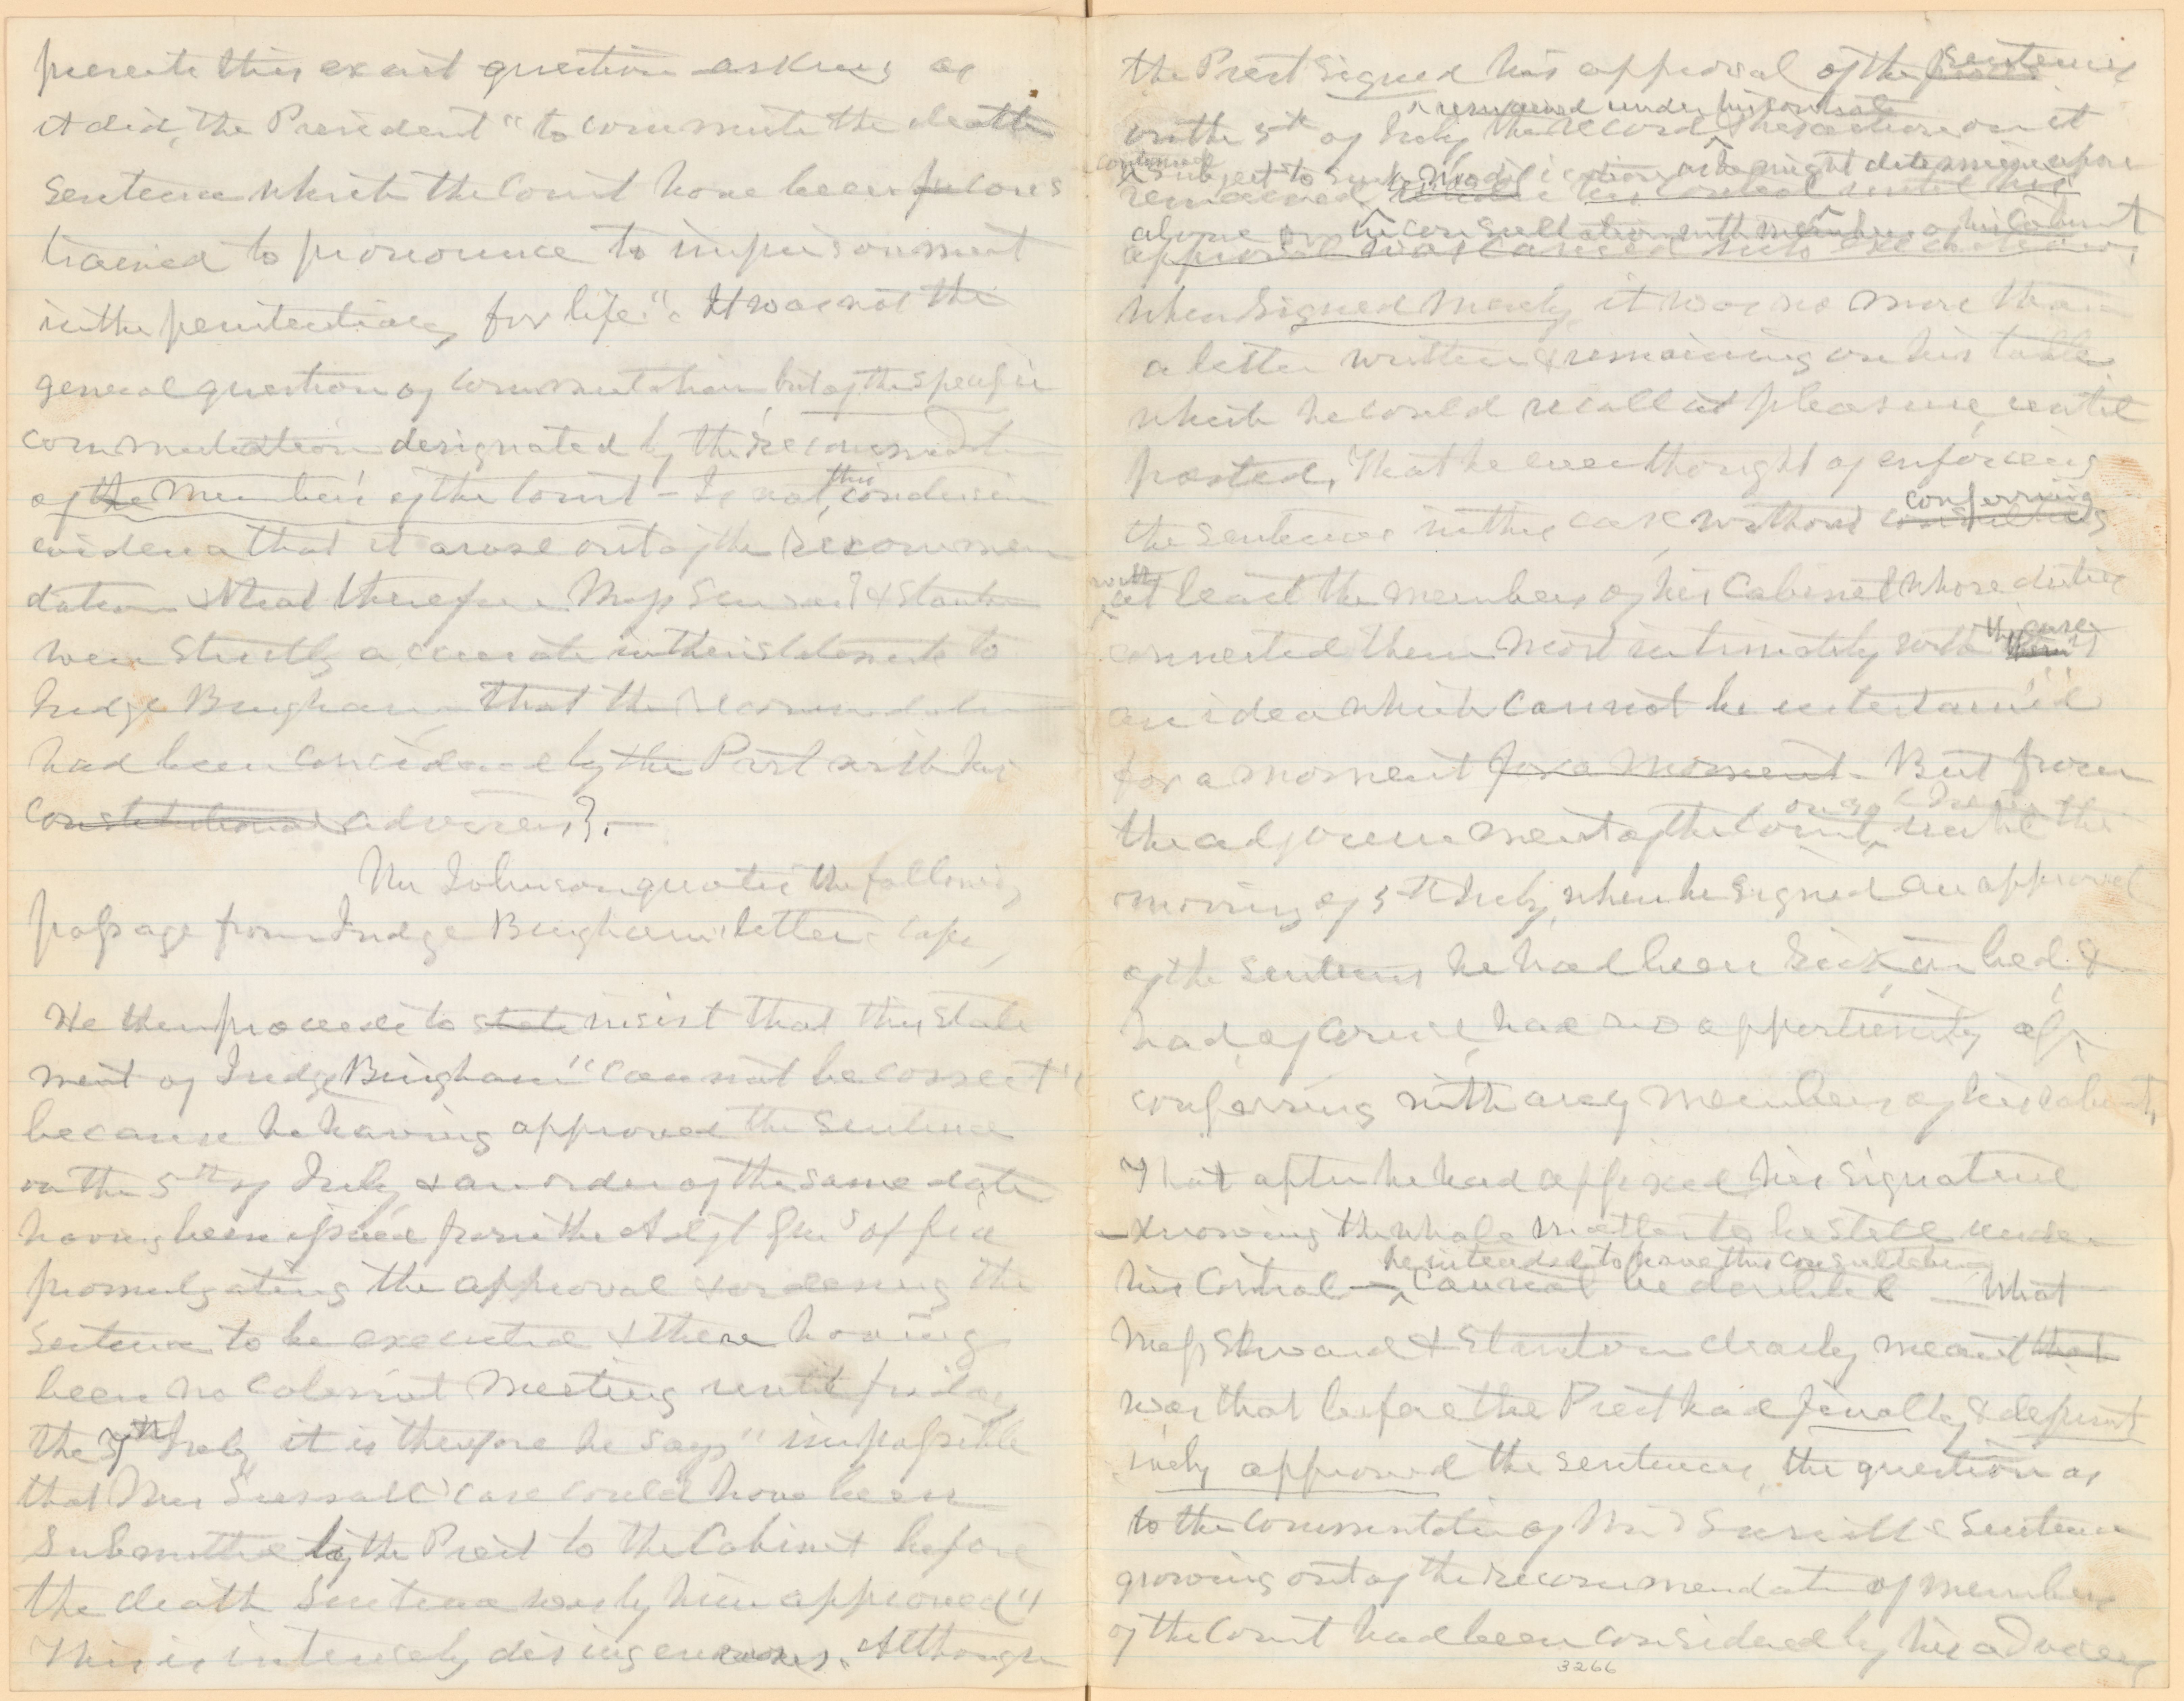 presents this exact question asking as
it did, the President "to commute the death
sentence which the Court have been cons
trained to pronounce to imprisonment
in the penitentiary for life". It was not the
general question of commutation but of the specific
commutation designated by the recommendation
of the members of the Court - Is not this conclusive
evidence that it arose out of the recommen
dation & that therefore Messrs Seward & Stanton
were strictly accurate in their statements to
Judge Bingham that the recommendation
had been considered by the Prest with his
constitutional advisers?.
Mr Johnson quotes the following
passage from Judge Bingham's letter
He then proceeds to state insist that this state
ment of Judge Bingham "cannot be correct"
because he having approved the sentence
on the 5th of July & an order of the same date
having been issued from the Adjt Gen's office
promulgating the approval & ordering the
sentence to be executed & there having
been no Cabinet meeting until friday
the 7th July it is therefore he says "impossible
that Mrs Surratt's case could have been
submitted by the Prest to the Cabinet before
the death sentence was by him approved"
This is intensely disingenuous. Although
the Prest signed his approval of the sentence
remained under his control
on the 5th of July the record & his action on it
continued
& subject to such modification as he might determine upon
remained under his control until his
alone or in consultation with members of his Cabinet
approval was carried into execution,
when signed merely, it was no more than
a letter written & remaining on his table
which he could recall at pleasure, until
posted. That he ever thought of enforcing
conferring
the sentence in this case, without consulting
with
at least the members of his Cabinet whose duties
the case
connected them most intimately with
an idea which cannot be entertained
for a moment for a moment. But from
on 30 June
the adjournment of the Court until the
morning of 5th July, when he signed an approval
of the sentence he had been sick, in bed &
had, of course, had no opportunity of
conferring with any members of his cabinet,
That after he had affixed his signature
- knowing the whole matter to be still under
he intended to have this consultation
his control - cannot be doubted - What
Messrs Seward & Stanton clearly meant that
was that before the Prest had finally & definit
ively approved the sentence, the question as
to the commutation of Mrs Surratt's sentence
growing out of the recommendation of members
of the Court had been considered by his advisers
3266